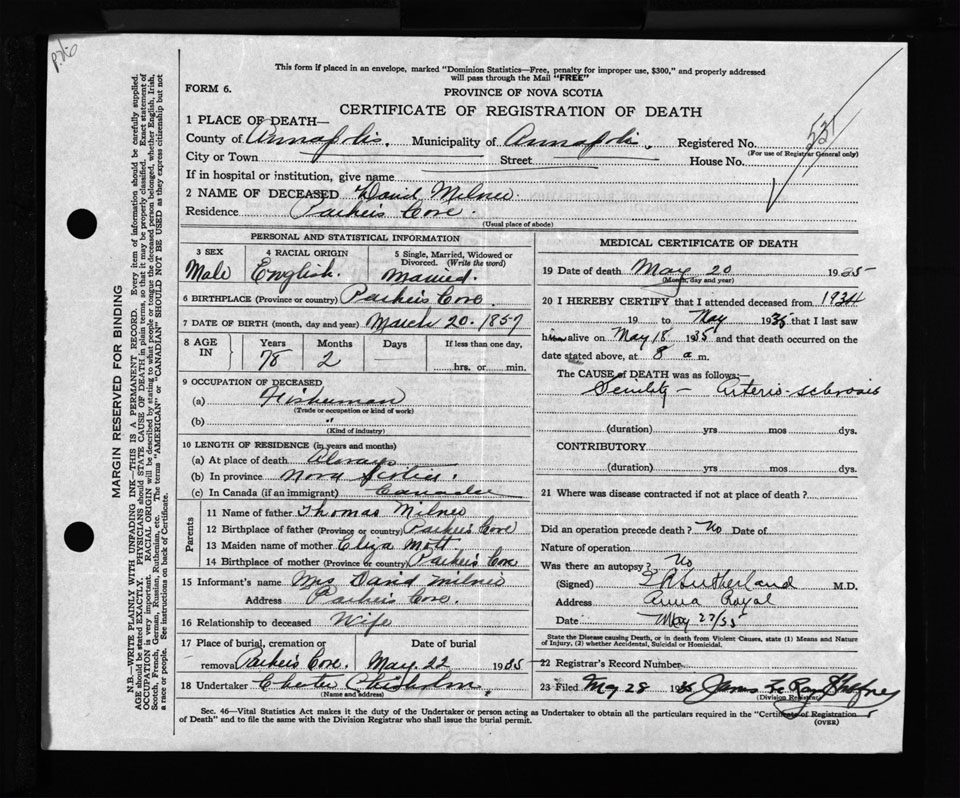 This form if placed in an envelope, marked "Dominion Statistics—Free, penalty for improper use, $300," and properly addressed
will pass through the Mail "FREE"
FORM 6.
PROVINCE OF NOVA SCOTIA
CERTIFICATE OF REGISTRATION OF DEATH
1 PLACE OF DEATH—
County of Annapolis. Municipality of Annapolis. Registered No. 535
(For use of Registrar General only)
City or Town Street House No.
If in hospital or institution, give name
2 NAME OF DECEASED David Milner.
Residence Parkers Cove.
(Usual place of abode)
MARGIN RESERVED FOR BINDING
N.B.—WRITE PLAINLY WITH UNFADING INK—THIS IS A PERMANENT RECORD. Every item of information should be carefully supplied.
AGE should be stated EXACTLY. PHYSICIANS should STATE CAUSE OF DEATH in plain terms, so that it may be properly classified. Exact statement of
OCCUPATION is very important. RACIAL ORIGIN will be described by stating to what people or tongue the deceased person belonged, whether English, Irish,
Scotch, French, German, Russian, Ruthenian, etc. The terms "AMERICAN" or "CANADIAN" SHOULD NOT BE USED as they express citizenship but not
a race or people. See instructions on back of Certificate.
PERSONAL AND STATISTICAL INFORMATION
3 SEX 4 RACIAL ORIGIN 5 Single, Married, Widowed or
Divorced. (Write the word)
Male English. Married.
6 BIRTHPLACE (Province or country) Parkers Cove.
7 DATE OF BIRTH (month, day and year) March 20. 1857
8 AGE IN Years Months Days If less than one day,
78 2 hrs. or min.
9 OCCUPATION OF DECEASED
(a) Fisherman
(Trade or occupation or kind of work)
(b) "
(Kind of industry)
10 LENGTH OF RESIDENCE (in years and months)
(a) At place of death Always
(b) In province Nova Scotia.
(c) In Canada (if an immigrant) Canada
Parents
11 Name of father Thomas Milner
12 Birthplace of father (Province or country) Parkers Cove
13 Maiden name of mother Eliza Mott
14 Birthplace of mother (Province or country) Parkers Cove
15 Informant's name Mrs David Milner
Address Parkers Cove.
16 Relationship to deceased Wife
17 Place of burial, cremation or Date of burial
removal Parkers Cove. May. 22 1935
18 Undertaker Chisholm.
(Name and address)
MEDICAL CERTIFICATE OF DEATH
19 Date of death May 20 1935
(Month, day and year)
20 I HEREBY CERTIFY that I attended deceased from 1934
19 to May 1935 that I last saw
him alive on May 18 1935 and that death occurred on the
date stated above, at 8 a m.
The CAUSE OF DEATH was as follows:—
Senility – Arterio-sclerosis
(duration) yrs mos dys.
CONTRIBUTORY
(duration) yrs mos dys.
21 Where was disease contracted if not at place of death?
Did an operation precede death? No Date of
Nature of operation
Was there an autopsy? No
(Signed) Sutherland M.D.
Address Anna Royal
Date May 27/35
State the Disease causing Death, or in death from Violent Causes, state (1) Means and Nature
of Injury, (2) whether Accidental, Suicidal or Homicidal.
22 Registrar's Record Number
23 Filed May 28 1935 James Le Ray
(Division Registrar)
Sec. 46—Vital Statistics Act makes it the duty of the Undertaker or person acting as Undertaker to obtain all the particulars required in the "Certificate of Registration
of Death" and to file the same with the Division Registrar who shall issue the burial permit.
(OVER)